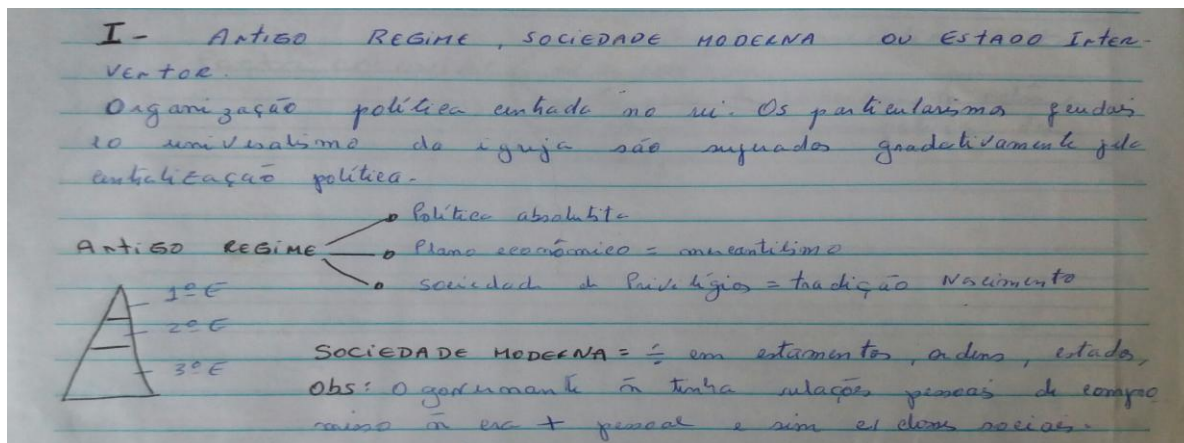 I - Antigo Regime, Sociedade Moderna ou Estado Inter-
ventor.
Organização política centrada no rei. Os particularismos feudais
e o universalismo da igreja são superados gradativamente pela
centralização política.
Política absolutista
Antigo Regime Plano econômico = mercantilismo
Sociedade de Privilégios = tradição Nascimento
1º E
2º E
3º E
Sociedade Moderna = ÷ em estamentos, ordens, estados,
Obs: O governante ñ tinha relações pessoais de compro
misso ñ era + pessoal e sim c/ classes sociais.